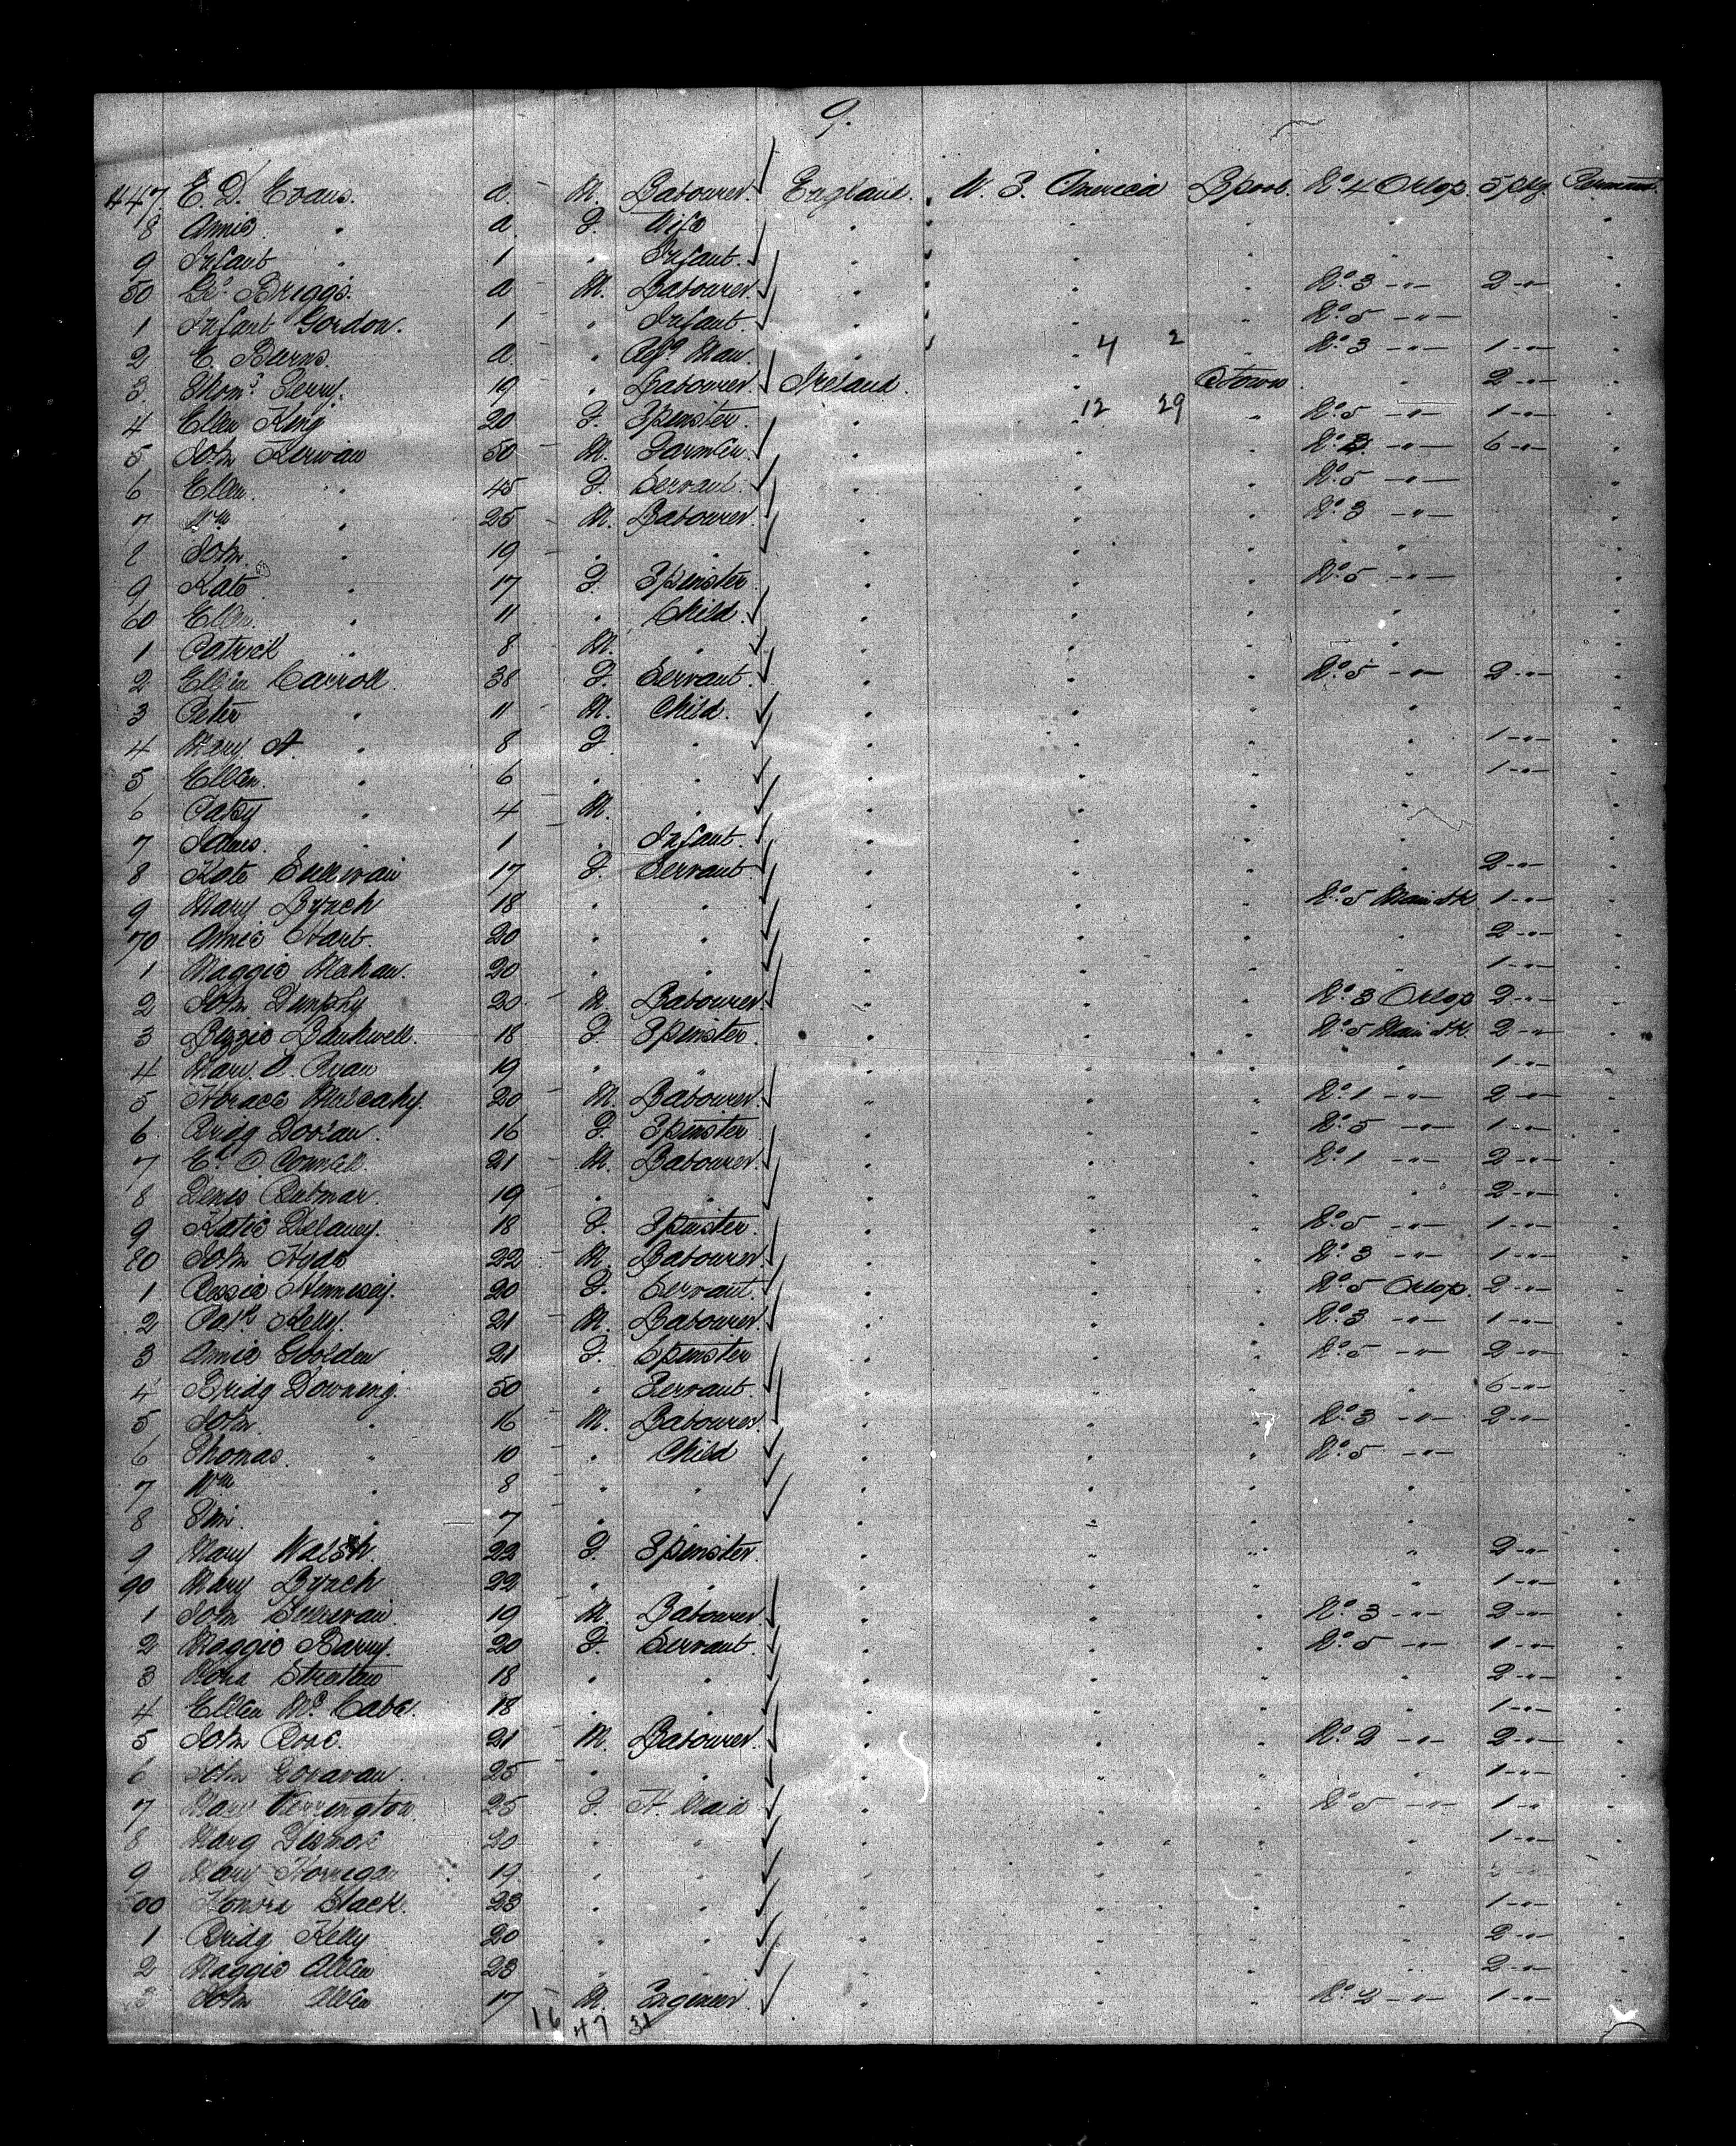 9.
447 E. D. Evans. a - M. Labourer. England. U. S. America Lpool. No. 4 Orlop. 5 pkg.
8 Annie " a F. Wife " " " " "
9 Infant " 1 " Infant. " " " " "
50 Geo. Briggs. a - M. Labourer. " " " No. 3 -"- 2 -"- "
1 Infant Gordon. 1 - " Infant. " " " No. 5 -"- "
2 E. Burns. a " Man. " " 4 2 " No. 3 -"- 1 -"- "
3. Thoms. 19 " Labourer. Ireland. " Q Town " 2 -"- "
4 Ellen King 20 F. Spinster. " 12 29 " No. 5 -"- 1 -"- "
5 John Kerwan 50 - M. Farmer. " " " No. 3. -"- 6 -"- "
6 Ellen. " 45 F. Servant. " " " No. 5 -"- "
7 Wm " 25 - M. Labourer. " " " No. 3 -"- "
8 John. " 19 - " " " " " " "
9 Kate. " 17 F. Spinster. " " " No. 5 -"- "
60 Ellen. " 11 " Child. " " " " "
1 Patrick " 8 M. " " " " " "
2 Ellen Carroll. 38 F. Servant. " " " No. 5 -"- 2 -"- "
3 Peter " 11 - M. Child. " " " " "
4 Mary A. " 8 F. " " " " " 1 -"- "
5 Ellen. " 6 " " " " " " 1 -"- "
6 Patsy " 4 - M. " " " " " "
7 James. " 1 - " Infant. " " " " "
8 Kate Sullivan 17 F. Servant " " " " 2 -"- "
9 Mary Lynch 18 " " " " " No. 5 Main dk. 1 -"- "
70 Annie Hart. 20 " " " " " " 2 -"- "
1 Maggie Mahan. 20 " " " " " " 1 -"- "
2 John Dunphy 20 - M. Labourer. " " " No. 3 Orlop 2 -"- "
3 Lizzie 18 F. Spinster. " " " No. 5 Main dk. 2 -"- "
4 Mary. A. Ryan 19 " " " " " " 1 -"- "
5 Horace Mulcahy. 20 - M. Labourer. " " " No. 1 -"- 2 -"- "
6. Bridg Doolan. 16 F. Spinster " " " No. 5 -"- 1 -"- "
7 Ed. O Connell. 21 - M. Labourer. " " " No. 1 -"- 2 -"- "
8 Denis 19 - " " " " " " 2 -"- "
9 Katie Delaney. 18 F. Spinster. " " " No. 5 -"- 1 -"- "
80 John Hyde 22 - M. Labourer. " " " No. 3 -"- 1 -"- "
1 Bessie Hennesey. 20 F. Servant. " " " No. 5 Orlop. 2 -"- "
2 Patk. Kelly. 21 - M. Labourer. " " " No. 3 -"- 1 -"- "
3 Annie Goolden 21 F. Spinster " " " No. 5 -"- 2 -"- "
4 Bridg Downing. 50 " Servant. " " " " 6 -"- "
5 John. " 16 - M. Labourer. " " " No. 3 -"- 2 -"- "
6 Thomas. " 10 - " Child " " " No. 5 -"- "
7 Wm " 8 - " " " " " " "
8 Tim. " 7 - " " " " " " "
9 Mary Walsh. 22 F. Spinster. " " " " 2 -"- "
90 Mary Lynch 22 " " " " " " 1 -"- "
1 John Sullivan. 19 M. Labourer " " " No. 3 -"- 2 -"- "
2 Maggie Barry. 20 F. Servant. " " " No. 5 -"- 1 -"- "
3 Nora 18 " " " " " " 2 -"- "
4 Ellen McCabe. 18 " " " " " " 1 -"- "
5 John 21 - M. Labourer. " " " No. 2 -"- 2 -"- "
6 John 25 - " " " " " " 1 -"- "
7 Mary 25 F. H. Maid " " " No. 5 -"- 1 -"- "
8 Marg 20 " " " " " " 1 -"- "
9 Mary Horrigan 19. " " " " " " "
500 Honora Slack. 23 " " " " " " 1 -"- "
1 Bridg Kelly 20 " " " " " " 2 -"- "
2 Maggie Allen 23 " " " " " " 2 -"- "
3 John Allen 17 - M. Engineer. " " " No. 2 -"- 1 -"- "
16 47 31